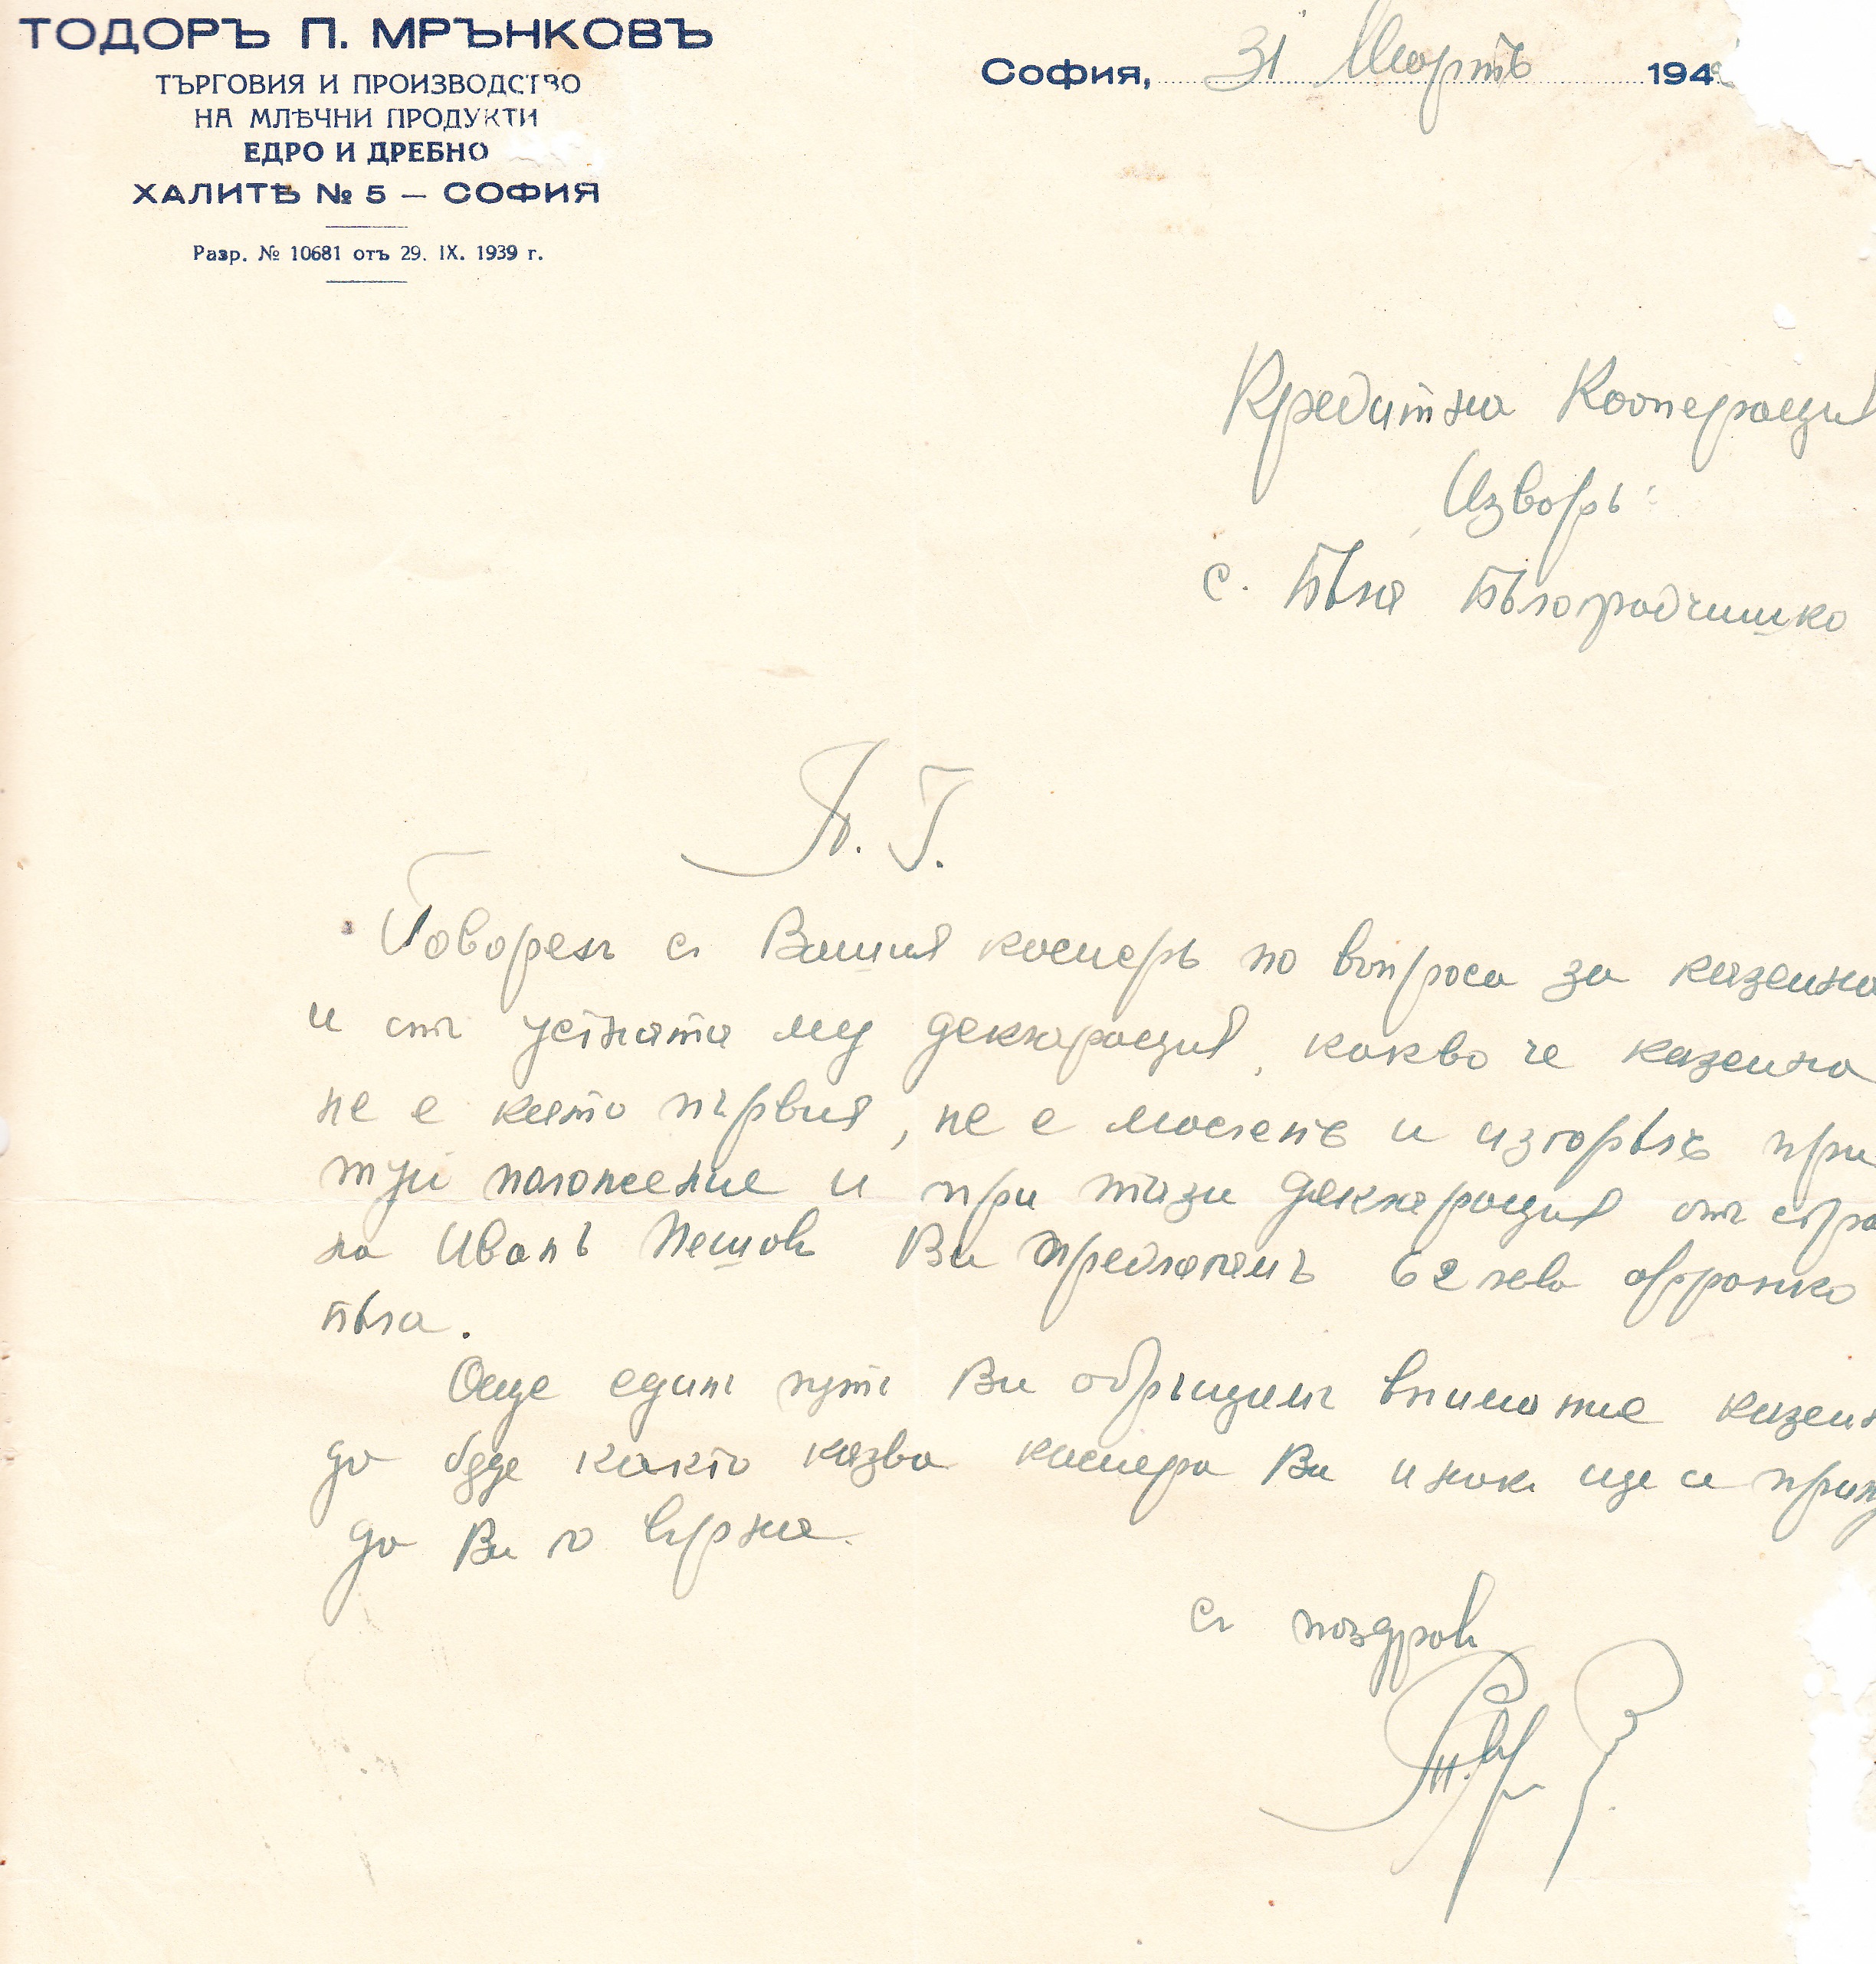 ТОДОРЪ П. МРЪНКОВЪ
ТЪРГОВИЯ И ПРОИЗВОДСТВО
НА МЛѢЧНИ ПРОДУКТИ
ЕДРО И ДРЕБНО
ХАЛИТѢ № 5 — СОФИЯ
Разр. № 10681 отъ 29. IX. 1939 г.
София, 31 Мартъ 194
Кредитна Кооперация
Изворъ
с. Бѣла Бѣлоградчишко
П. Г.
Говорих съ Вашия касиеръ по въпроса за казеина
и отъ устната му декларация, какво че казеина
не е като първия, не е масленъ и изгорѣлъ при
туй положение и при тази декларация отъ стра
на Иванъ Пешов Ви предлагамъ 62 лева франко
Бѣла.
Още единъ путъ Ви обръщамъ внимание казеин
да бѫде както казва касиера Ви инак ще се прин
да Ви го върна.
Съ поздрав